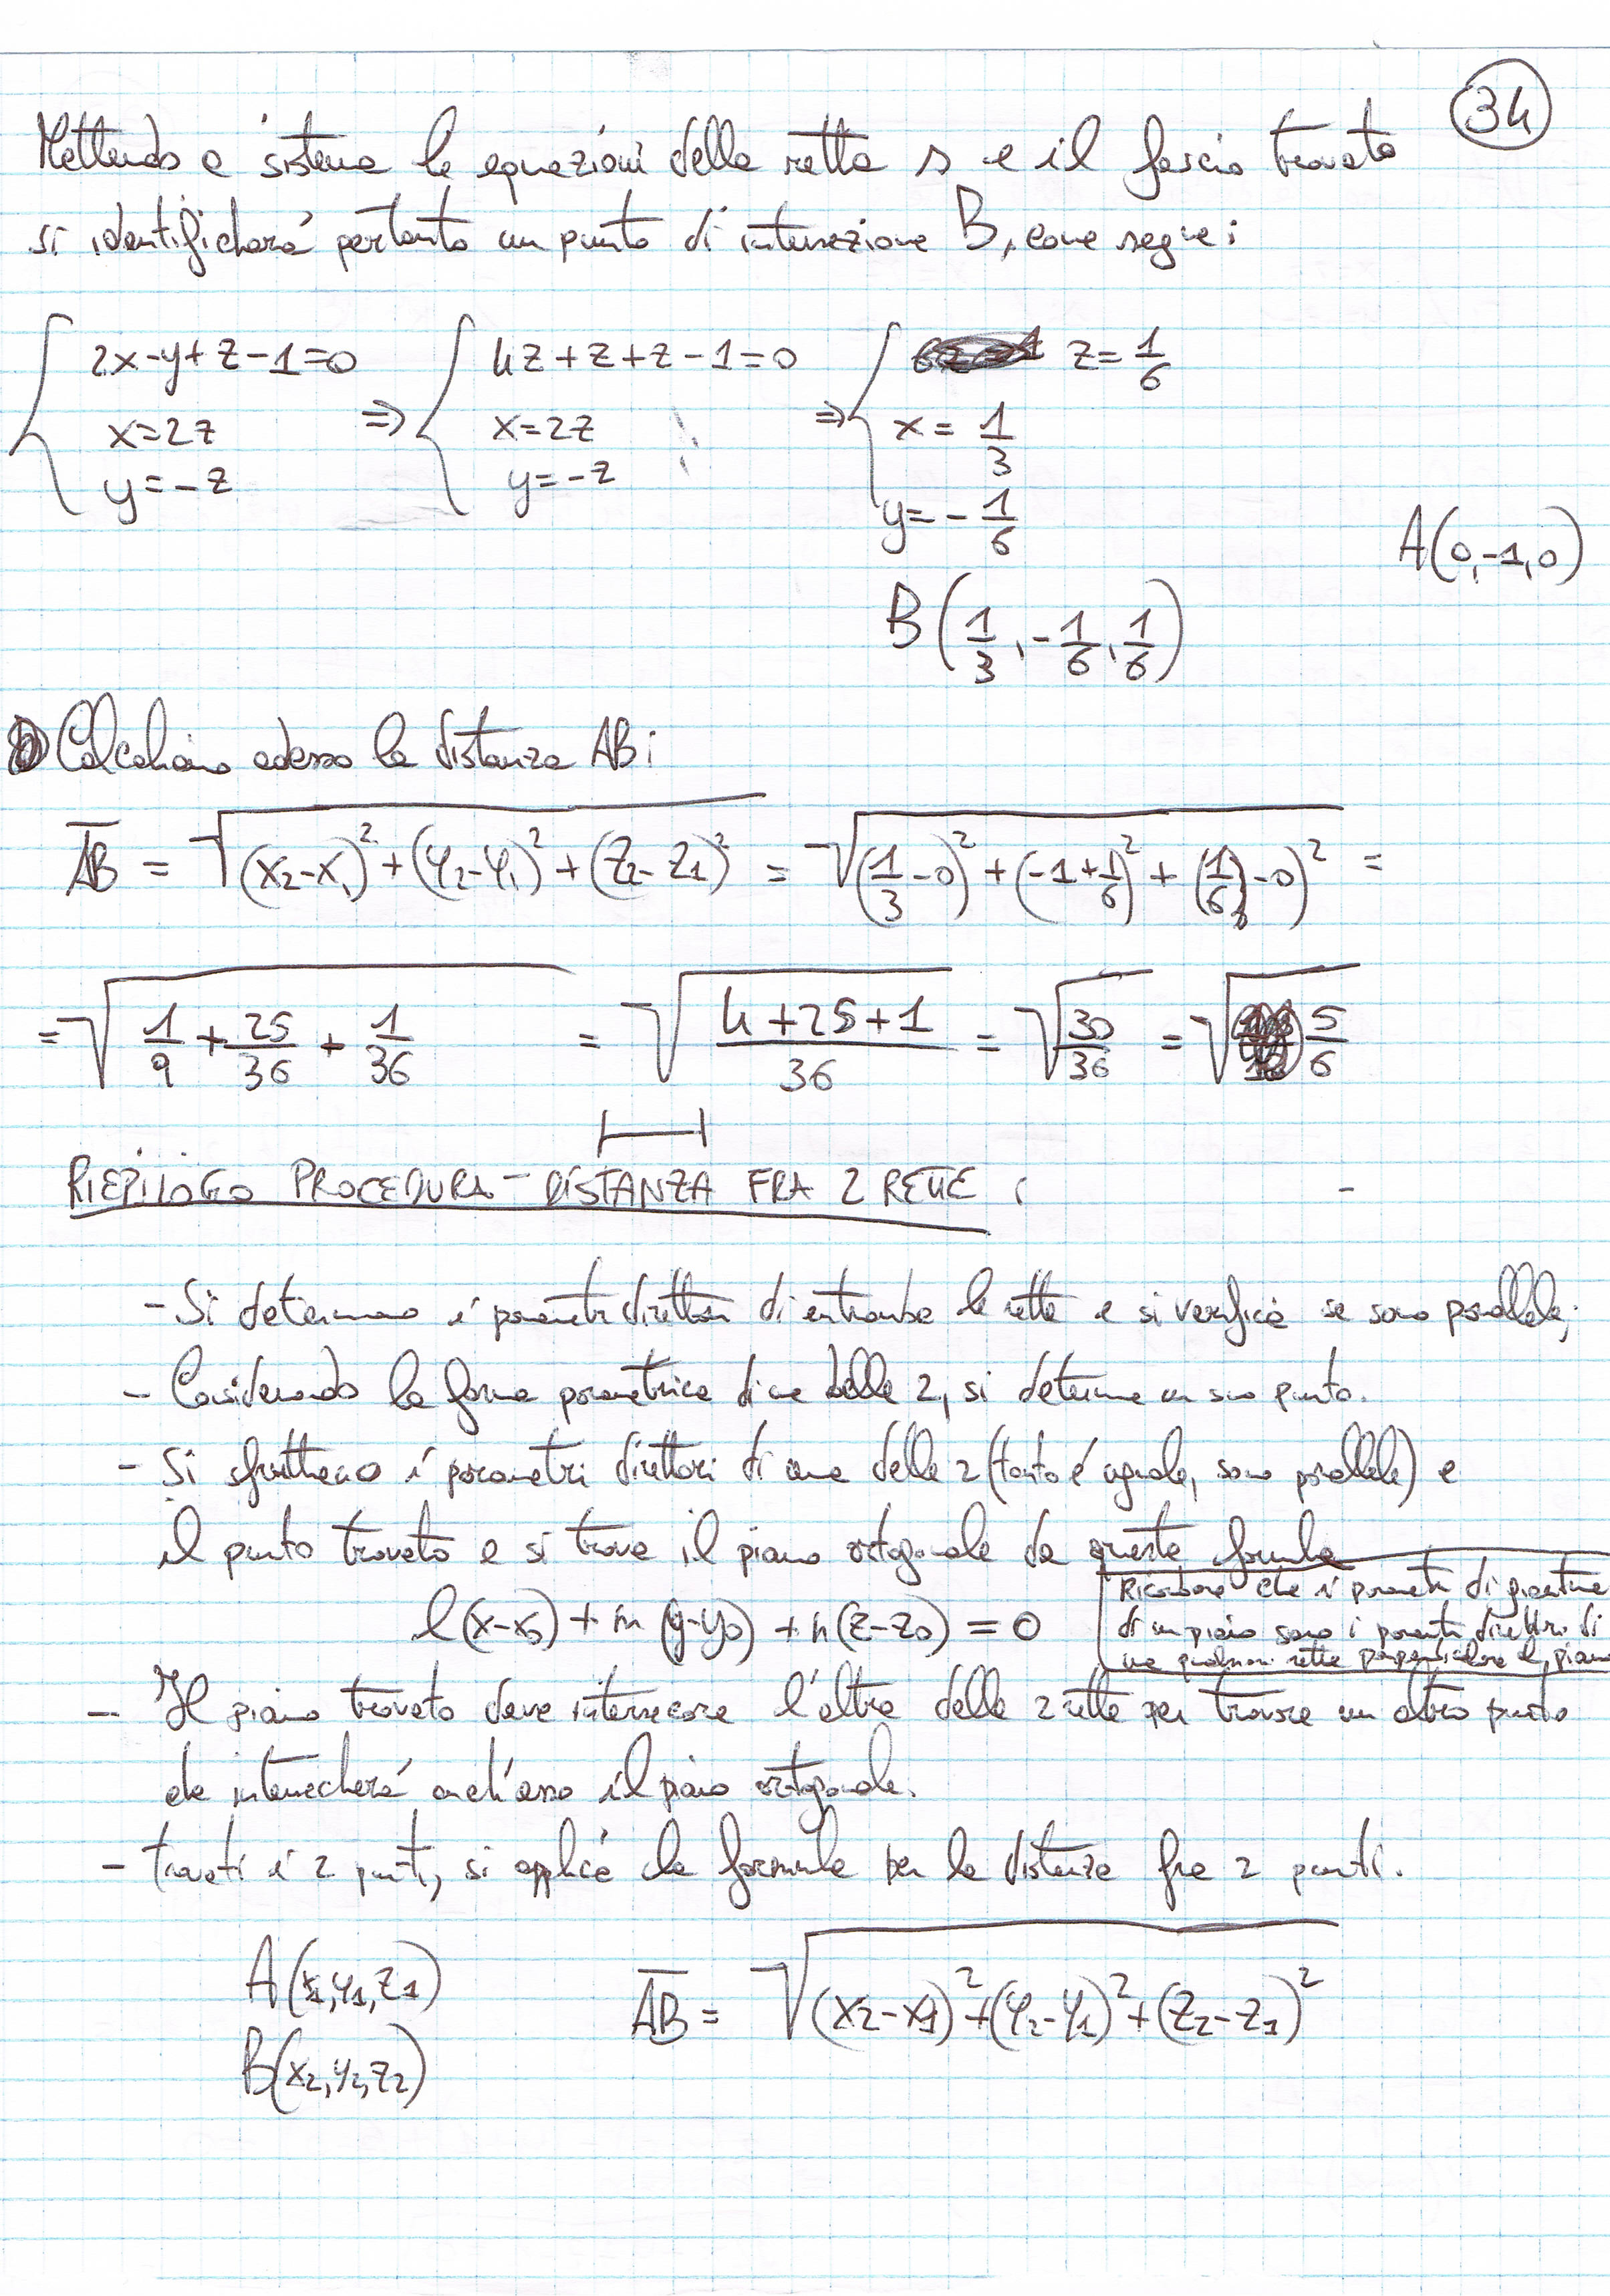 34
Mettendo a sistema le equazioni della retta s e il fascio trovato
si identificherá pertanto un punto di intersezione B, come segue:
{ 2x-y+z-1=0 ⇒ { 4z+z+z-1=0 ⇒ { z=1/6
x=2z x=2z x=1/3
y=-z y=-z y=-1/6
A(0,-1,0)
B(1/3,-1/6,1/6)
Calcoliamo adesso la distanza AB:
AB = √(x₂-x₁)²+(y₂-y₁)²+(z₂-z₁)² = √(1/3-0)²+(-1+1/6)²+(1/6-0)² =
= √1/9+25/36+1/36 = √4+25+1/36 = √30/36 = √5/6
RIEPILOGO PROCEDURA-DISTANZA FRA 2 RETTE:
- Si determinano i parametri direttori di entrambe le rette e si verifica se sono parallele;
- Considerando la forma parametrica di una delle 2, si determina un suo punto.
- Si sfruttano i parametri direttori di una delle 2 (tanto é uguale, sono parallele) e
il punto trovato e si trova il piano ortogonale da questa formula
l(x-x₀)+m(y-y₀)+n(z-z₀)=0
Ricordare che i parametri di giacitura
di un piano sono i parametri direttori di
una qualsiasi retta perpendicolare al piano
- Il piano trovato deve intersecare l'altra delle 2 rette per trovare un altro punto
che intersecherá anch'esso il piano ortogonale.
- trovati i 2 punti, si applica la formula per la distanza fra 2 punti.
A(x₁,y₁,z₁)
AB = √(x₂-x₁)²+(y₂-y₁)²+(z₂-z₁)²
B(x₂,y₂,z₂)